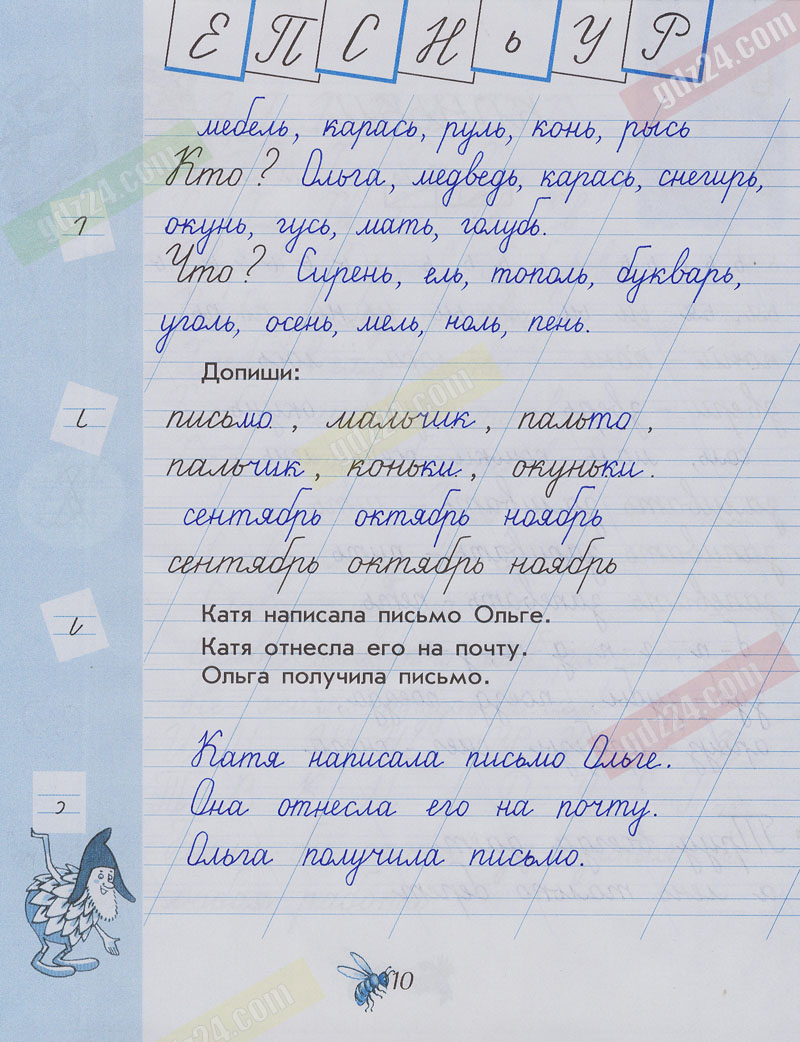 Е П С Н ь У Р
мебель, карась, руль, конь, рысь
Кто? Ольга, медведь, карась, снегирь,
окунь, гусь, мать, голубь.
Что? Сирень, ель, тополь, букварь,
уголь, осень, мель, ноль, пень.
Допиши:
письмо, мальчик, пальто,
пальчик, коньки, окуньки.
сентябрь октябрь ноябрь
сентябрь октябрь ноябрь
Катя написала письмо Ольге.
Катя отнесла его на почту.
Ольга получила письмо.
Катя написала письмо Ольге.
Она отнесла его на почту.
Ольга получила письмо.
10
gdz24.com
gdz24.com
gdz24.com
gdz24.com
gdz24.com